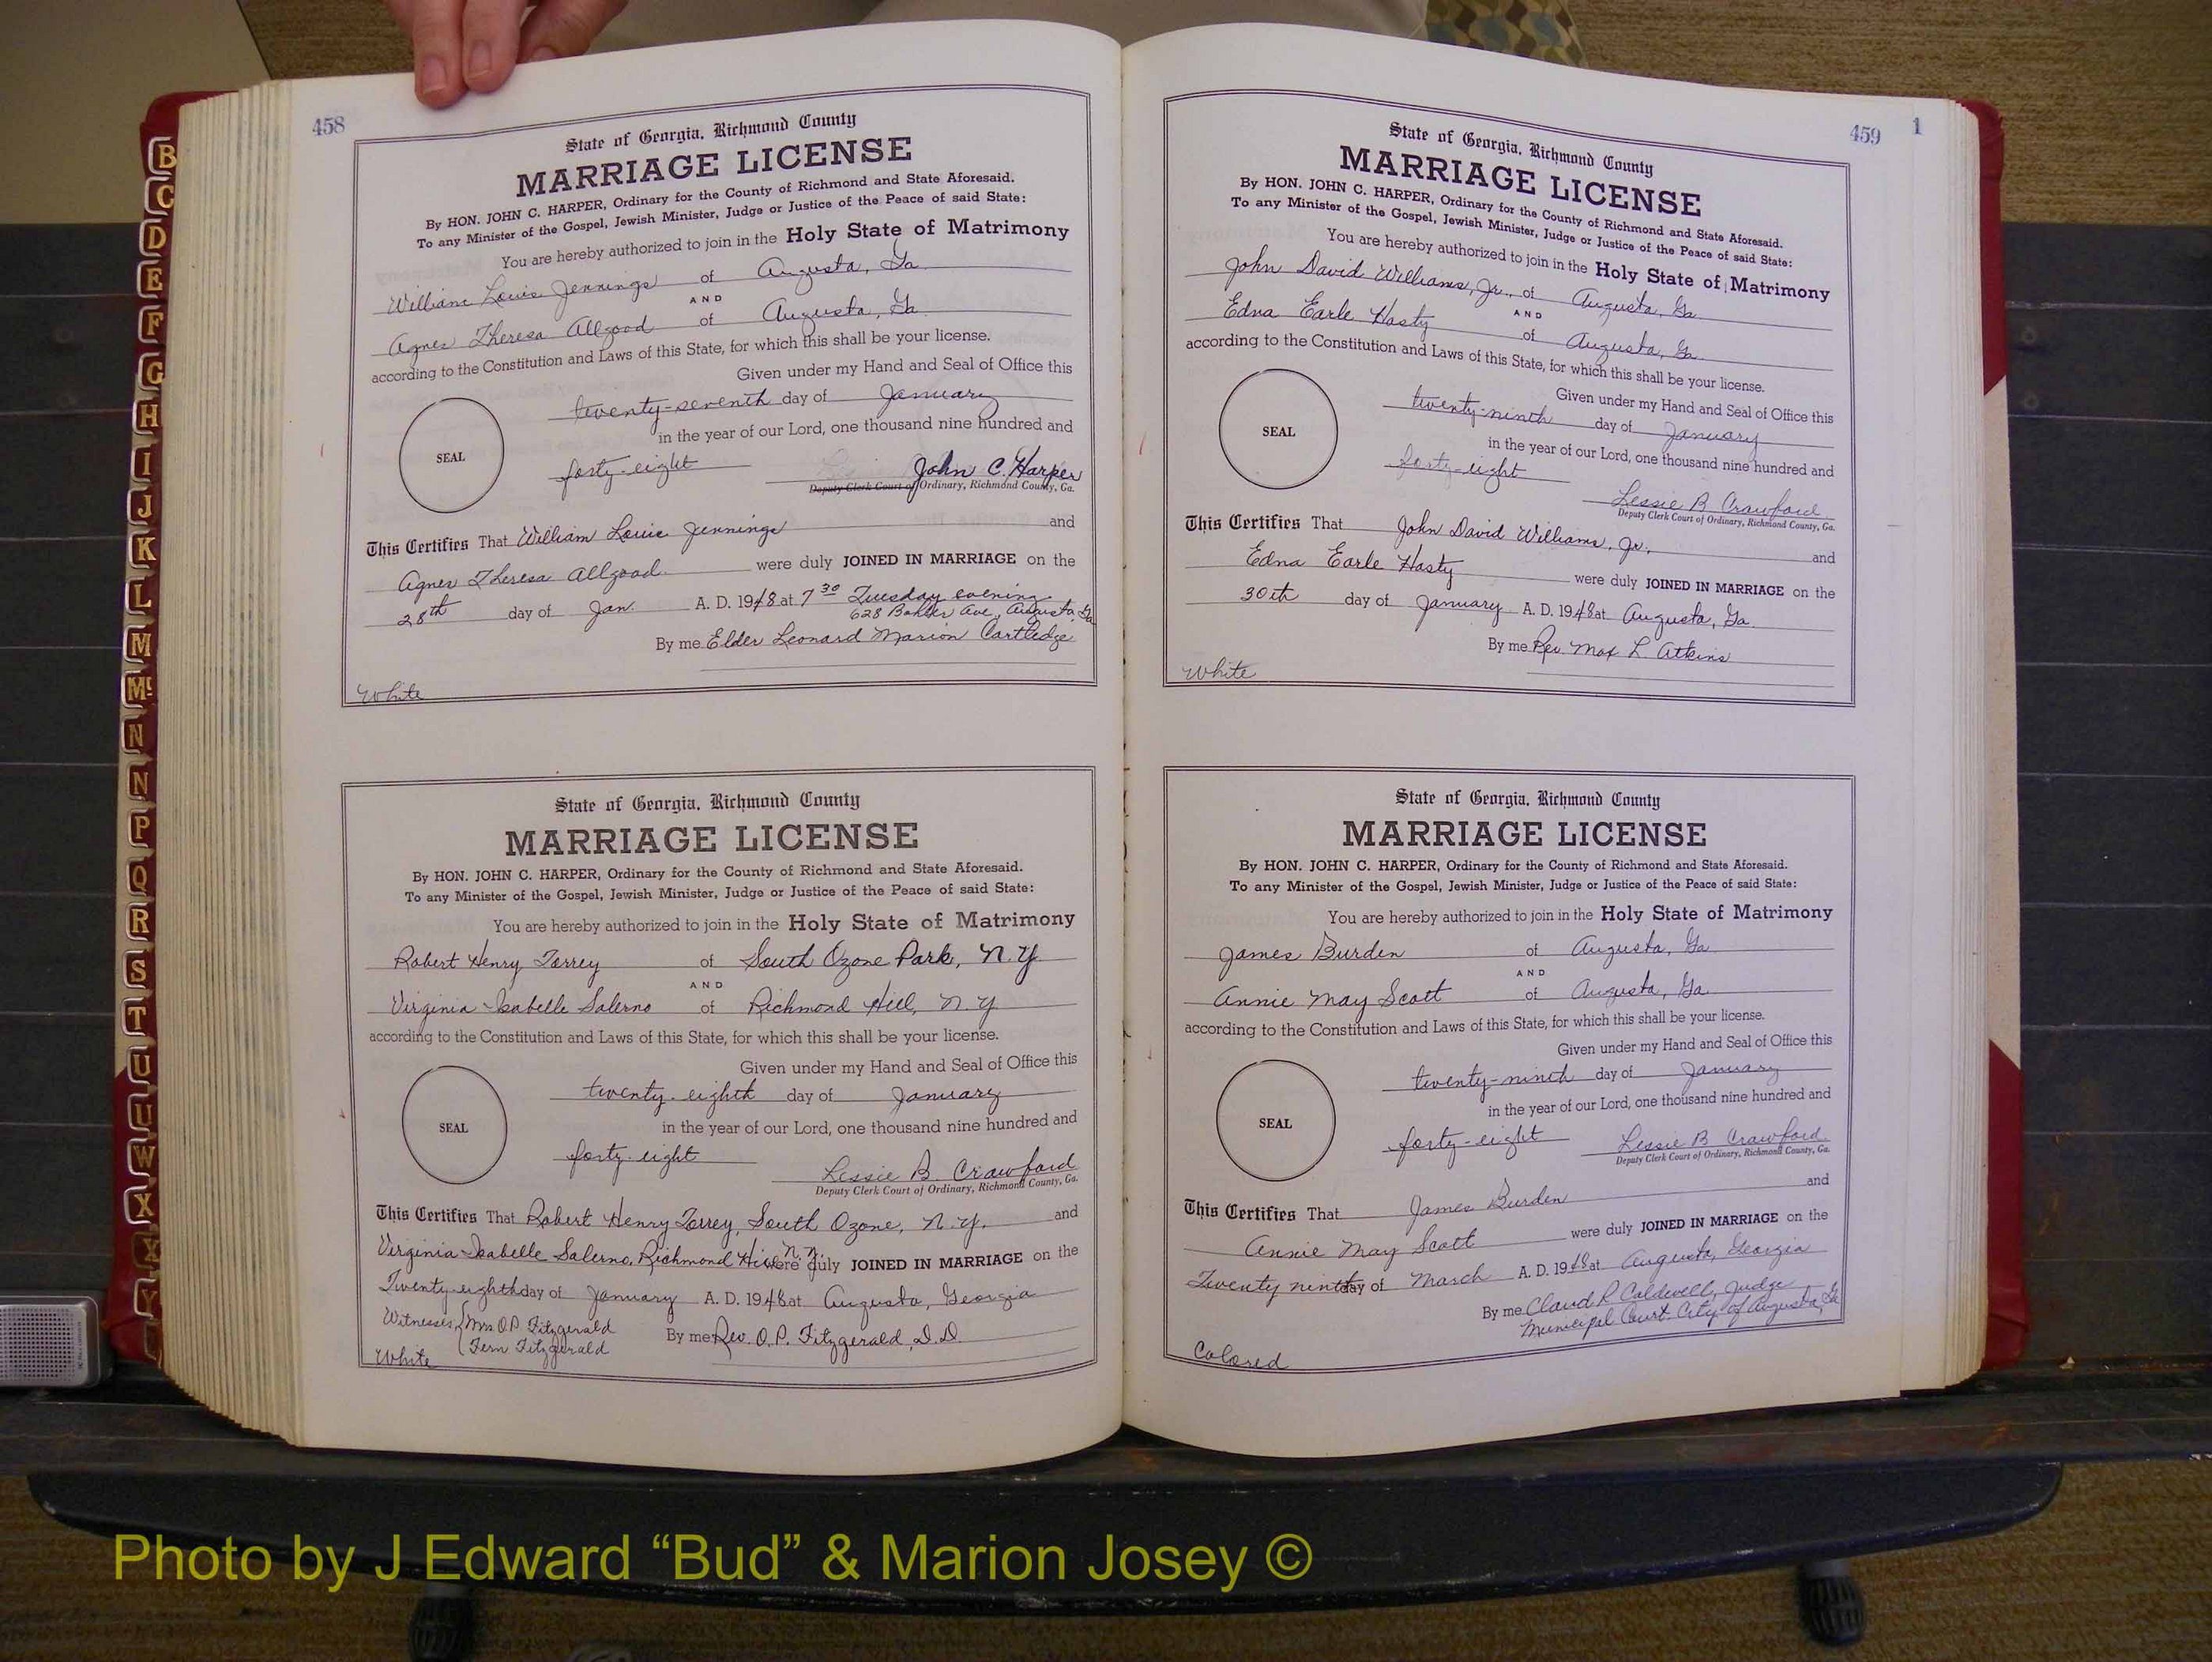 458
State of Georgia, Richmond County
MARRIAGE LICENSE
By HON. JOHN C. HARPER, Ordinary for the County of Richmond and State Aforesaid.
To any Minister of the Gospel, Jewish Minister, Judge or Justice of the Peace of said State:
You are hereby authorized to join in the Holy State of Matrimony
William Louis Jennings of Augusta, Ga.
AND
Agnes Theresa Allgood of Augusta, Ga.
according to the Constitution and Laws of this State, for which this shall be your license.
Given under my Hand and Seal of Office this
twenty-seventh day of January
in the year of our Lord, one thousand nine hundred and
SEAL
forty-eight John C. Harper
Deputy Clerk Court of Ordinary, Richmond County, Ga.
This Certifies That William Louis Jennings and
Agnes Theresa Allgood were duly JOINED IN MARRIAGE on the
28th day of Jan. A. D. 1948 at 7 30 Tuesday evening
628 Ave, Augusta, Ga
By me Elder Leonard Marion Cartledge
White
State of Georgia, Richmond County
MARRIAGE LICENSE
By HON. JOHN C. HARPER, Ordinary for the County of Richmond and State Aforesaid.
To any Minister of the Gospel, Jewish Minister, Judge or Justice of the Peace of said State:
You are hereby authorized to join in the Holy State of Matrimony
Robert Henry Torrey of South Ozone Park, N.Y.
AND
Virginia Isabelle Salerno of Richmond Hill, N.Y.
according to the Constitution and Laws of this State, for which this shall be your license.
Given under my Hand and Seal of Office this
twenty-eighth day of January
in the year of our Lord, one thousand nine hundred and
SEAL
forty-eight Lessie B. Crawford
Deputy Clerk Court of Ordinary, Richmond County, Ga.
This Certifies That Robert Henry Torrey, South Ozone, N.Y. and
Virginia Isabelle Salerno, Richmond Hill N.Y. were duly JOINED IN MARRIAGE on the
Twenty eighth day of January A. D. 1948 at Augusta, Georgia
Witnesses, { Mrs O.P. Fitzgerald
Fern Fitzgerald
By me Rev. O. P. Fitzgerald, D.D.
White
459 1
State of Georgia, Richmond County
MARRIAGE LICENSE
By HON. JOHN C. HARPER, Ordinary for the County of Richmond and State Aforesaid.
To any Minister of the Gospel, Jewish Minister, Judge or Justice of the Peace of said State:
You are hereby authorized to join in the Holy State of Matrimony
John David Williams, Jr., of Augusta, Ga.
AND
Edna Earle Hasty of Augusta, Ga.
according to the Constitution and Laws of this State, for which this shall be your license.
Given under my Hand and Seal of Office this
twenty-ninth day of January
in the year of our Lord, one thousand nine hundred and
SEAL
forty-eight Lessie B Crawford
Deputy Clerk Court of Ordinary, Richmond County, Ga.
This Certifies That John David Williams, Jr. and
Edna Earle Hasty were duly JOINED IN MARRIAGE on the
30th day of January A. D. 1948 at Augusta, Ga.
By me Rev. Max L. Atkins
White
State of Georgia, Richmond County
MARRIAGE LICENSE
By HON. JOHN C. HARPER, Ordinary for the County of Richmond and State Aforesaid.
To any Minister of the Gospel, Jewish Minister, Judge or Justice of the Peace of said State:
You are hereby authorized to join in the Holy State of Matrimony
James Burden of Augusta, Ga
AND
Annie May Scott of Augusta, Ga.
according to the Constitution and Laws of this State, for which this shall be your license.
Given under my Hand and Seal of Office this
twenty-ninth day of January
in the year of our Lord, one thousand nine hundred and
SEAL
forty-eight Lessie B Crawford
Deputy Clerk Court of Ordinary, Richmond County, Ga.
This Certifies That James Burden and
Annie May Scott were duly JOINED IN MARRIAGE on the
Twenty ninth day of March A. D. 1948 at Augusta, Georgia
By me Claud R Caldwell, Judge
Municipal Court City of Augusta, Ga
Colored
B
C
D
E
F
G
H
I
J
K
L
M
Mc
N
N
P
Q
R
S
T
U
U
W
X
X
Y
Photo by J Edward “Bud” & Marion Josey ©